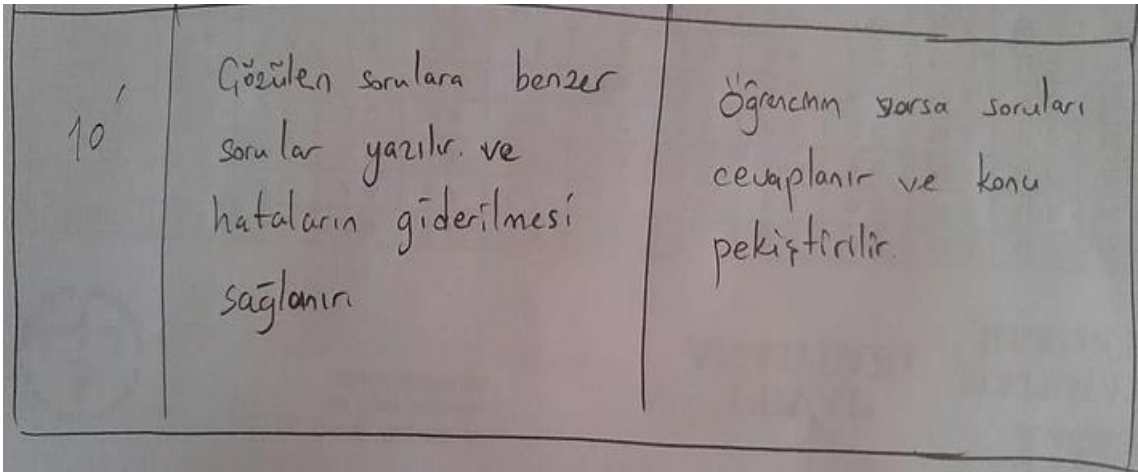 10'
Çözülen sorulara benzer
sorular yazılır. ve
hataların giderilmesi
sağlanır.
Öğrencinin varsa soruları
cevaplanır ve konu
pekiştirilir.